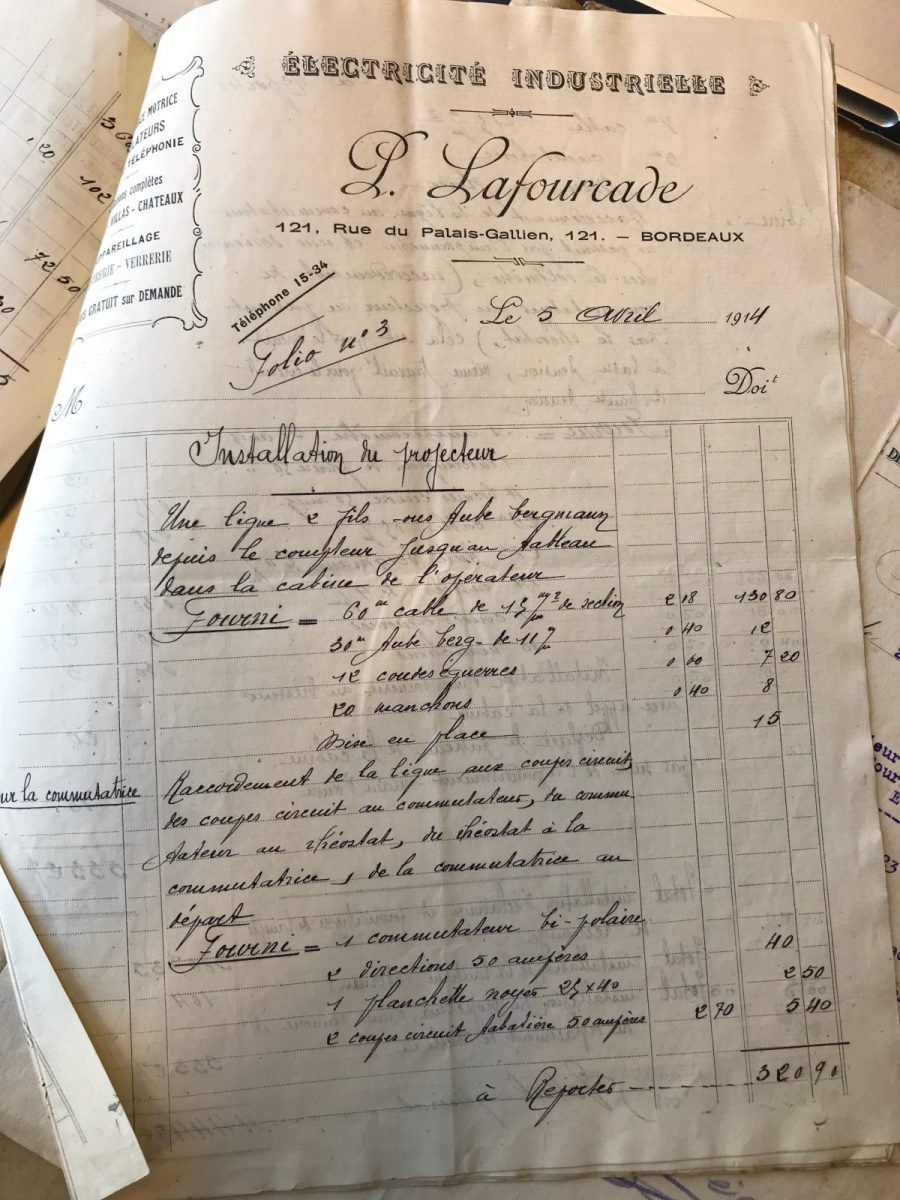 ÉLECTRICITÉ INDUSTRIELLE
P. Lafourcade
121, Rue du Palais-Gallien, 121. — BORDEAUX
MOTRICE
TÉLÉPHONIE
complètes
VILLAS - CHATEAUX
APPAREILLAGE
VERRERIE
GRATUIT sur DEMANDE
Téléphone 15-34
Le 5 Avril 1914
Folio n° 3
M
Doit
Installation du projecteur
Une ligne 2 fils sous tube bergmann
depuis le compteur jusqu'au tableau
dans la cabine de l'opérateur
Fourni = 60m cable de 15 m/m2 de section 2 18 130 80
30m tube berg. de 11 m/m 0 40 12
12 coudes équerres 0 60 7 20
20 manchons 0 40 8
Mise en place 15
sur la commutatrice
Raccordement de la ligne aux coupes circuit,
des coupes circuit au commutateur, du commu
tateur au rhéostat, du rhéostat à la
commutatrice, de la commutatrice au
départ
Fourni = 1 commutateur bi-polaire
2 directions 50 ampères 40
1 planchette noyer 25 x 40 2 50
2 coupes circuit tabatière 50 ampères 2 70 5 40
à Reporter 320 90
120
102
72 50